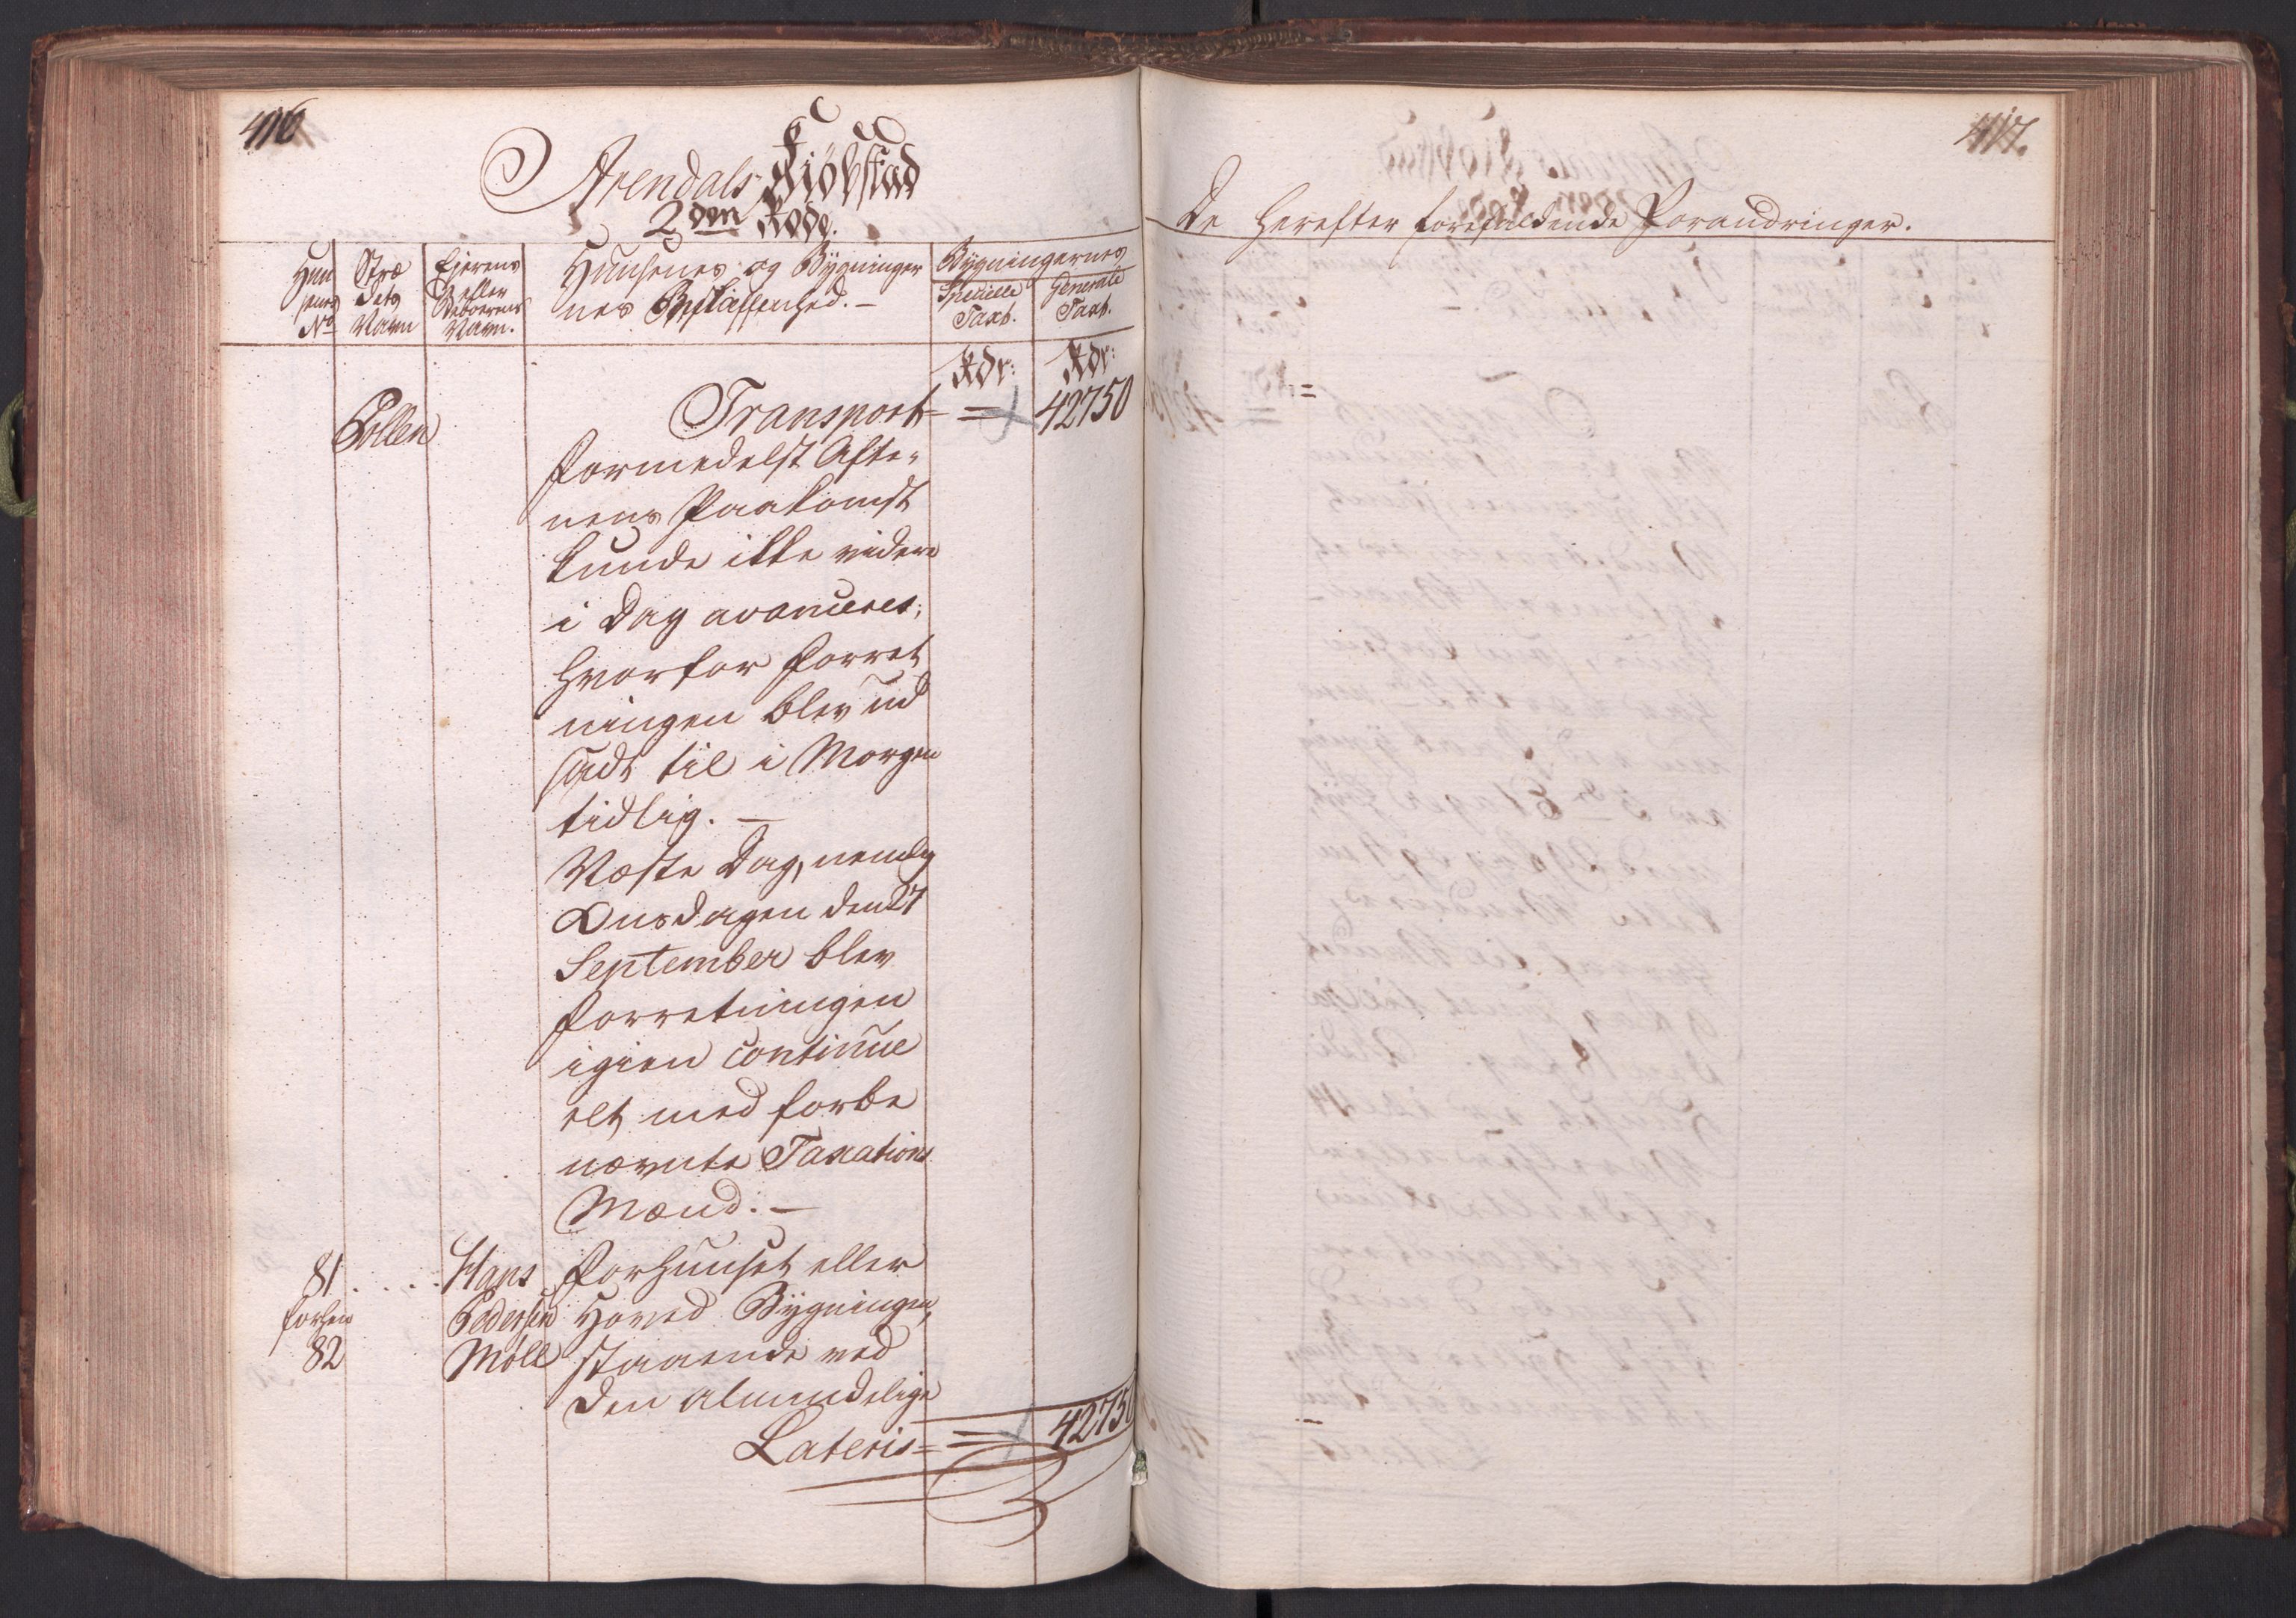 416
Arendals Kiøbstad
2den Rode.
Huu
senes
No
Stræ
dets
Navn
Ejerens
eller
Beboerens
Navn.
Huusenes og Bygninger
nes Beskaffenhed. -
Bygningernes
Specielle
Taxt.
Generale
Taxt.
Rdr:
Rdr:
Pollen
Transport = = 42750
formedelst Afte-
nens Paakomst
kunde ikke videre
i Dag avanceres;
hvorfor forret
ningen blev ud
sadt til i Morgen
tidlig. -
Næste Dag, nemlig
Onsdagen den 27
September blev
forretningen
igien continue
ret med forbe
nævnte Taxations
Mænd. -
81. . . . Hans Forhuuset eller
forhen Pedersen Hoved Bygningen,
82 Møll staaende ved
den almindelige
Lateris = = 42750
417.
De herefter forefaldende Forandringer.